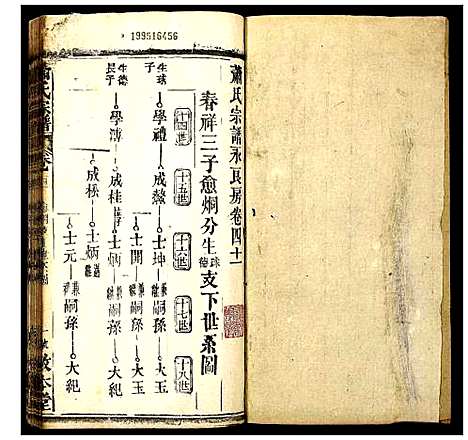 199516456
蕭氏宗譜永良房卷四十一
春祥三子愈炯分生球德支下世系圖
十四世 十五世 十六世 十七世 十八世
生球子 學禮 成 士坤 兼嗣孫 大玉
士開 嗣孫 大玉
生德長子 學溥 成桂 士炳 兼嗣孫 大紀
成松 士炳 嗣孫
士元 兼嗣孫 大紀
蕭氏宗譜
本堂